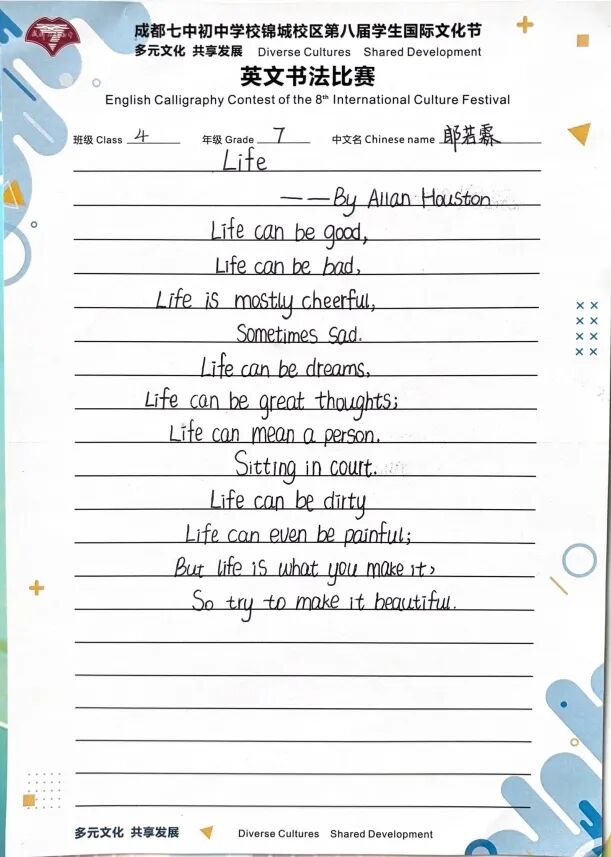 成都七中初中学校锦城校区第八届学生国际文化节
多元文化 共享发展 Diverse Cultures Shared Development
英文书法比赛
English Calligraphy Contest of the 8th International Culture Festival
班级 Class 4 年级 Grade 7 中文名 Chinese name 邬若霖
Life
——By Allan Houston
Life can be good,
Life can be bad,
Life is mostly cheerful,
Sometimes sad.
Life can be dreams,
Life can be great thoughts;
Life can mean a person.
Sitting in court.
Life can be dirty
Life can even be painful;
But life is what you make it,
So try to make it beautiful.
多元文化 共享发展 Diverse Cultures Shared Development